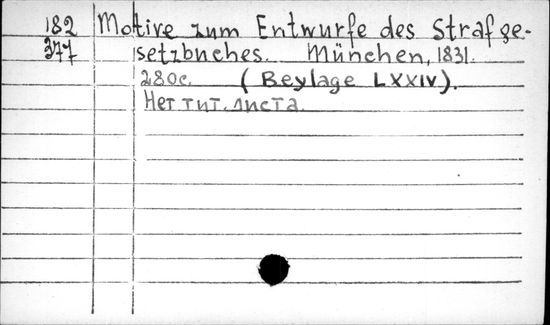 182 Motive zum Entwurfe des Strafge-
377 setzbuches. München, 1831.
280c. (Beylage LXXIV).
Нет тит. листа.